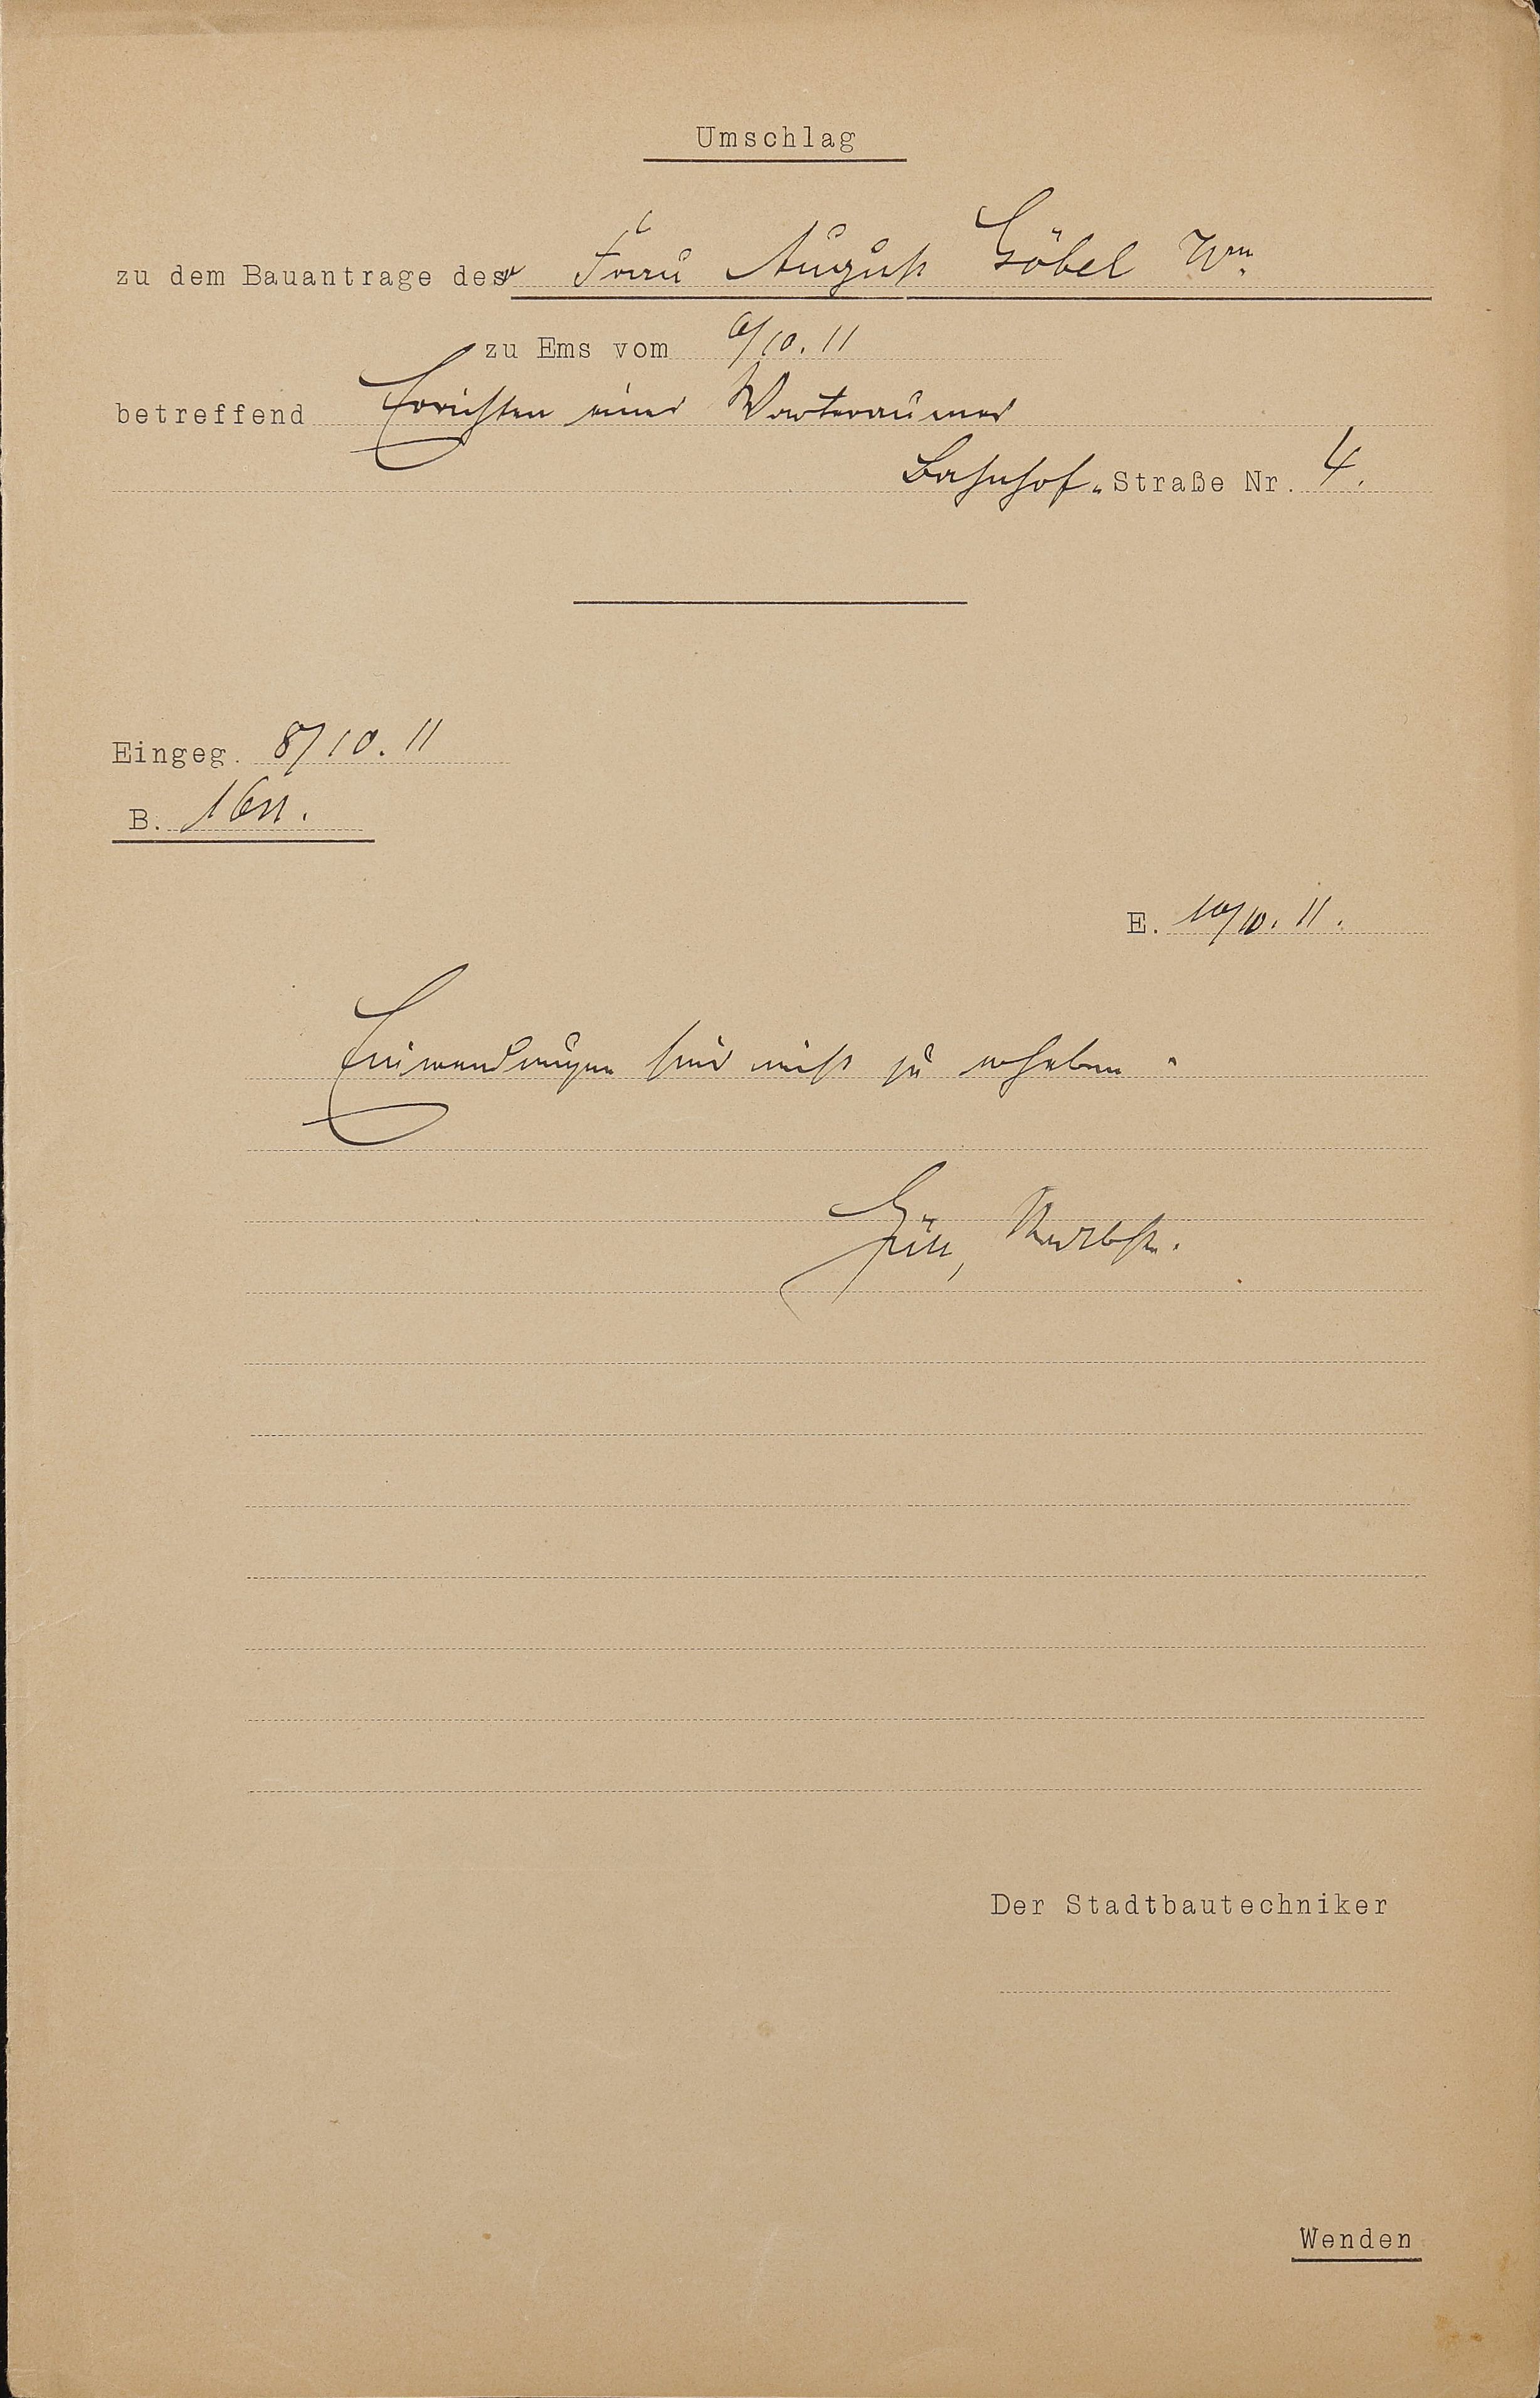 Umschlag
zu dem Bauantrage der Frau August Göbel Wwe.
zu Ems vom 6/10.11
betreffend Errichten eines Warteraumes
Bahnhof-Straße Nr. 4.
Eingeg. 8/10.11
B.
E. 10/10.11.
Einwendungen sind nicht zu erheben.
Der Stadtbautechniker
Wenden